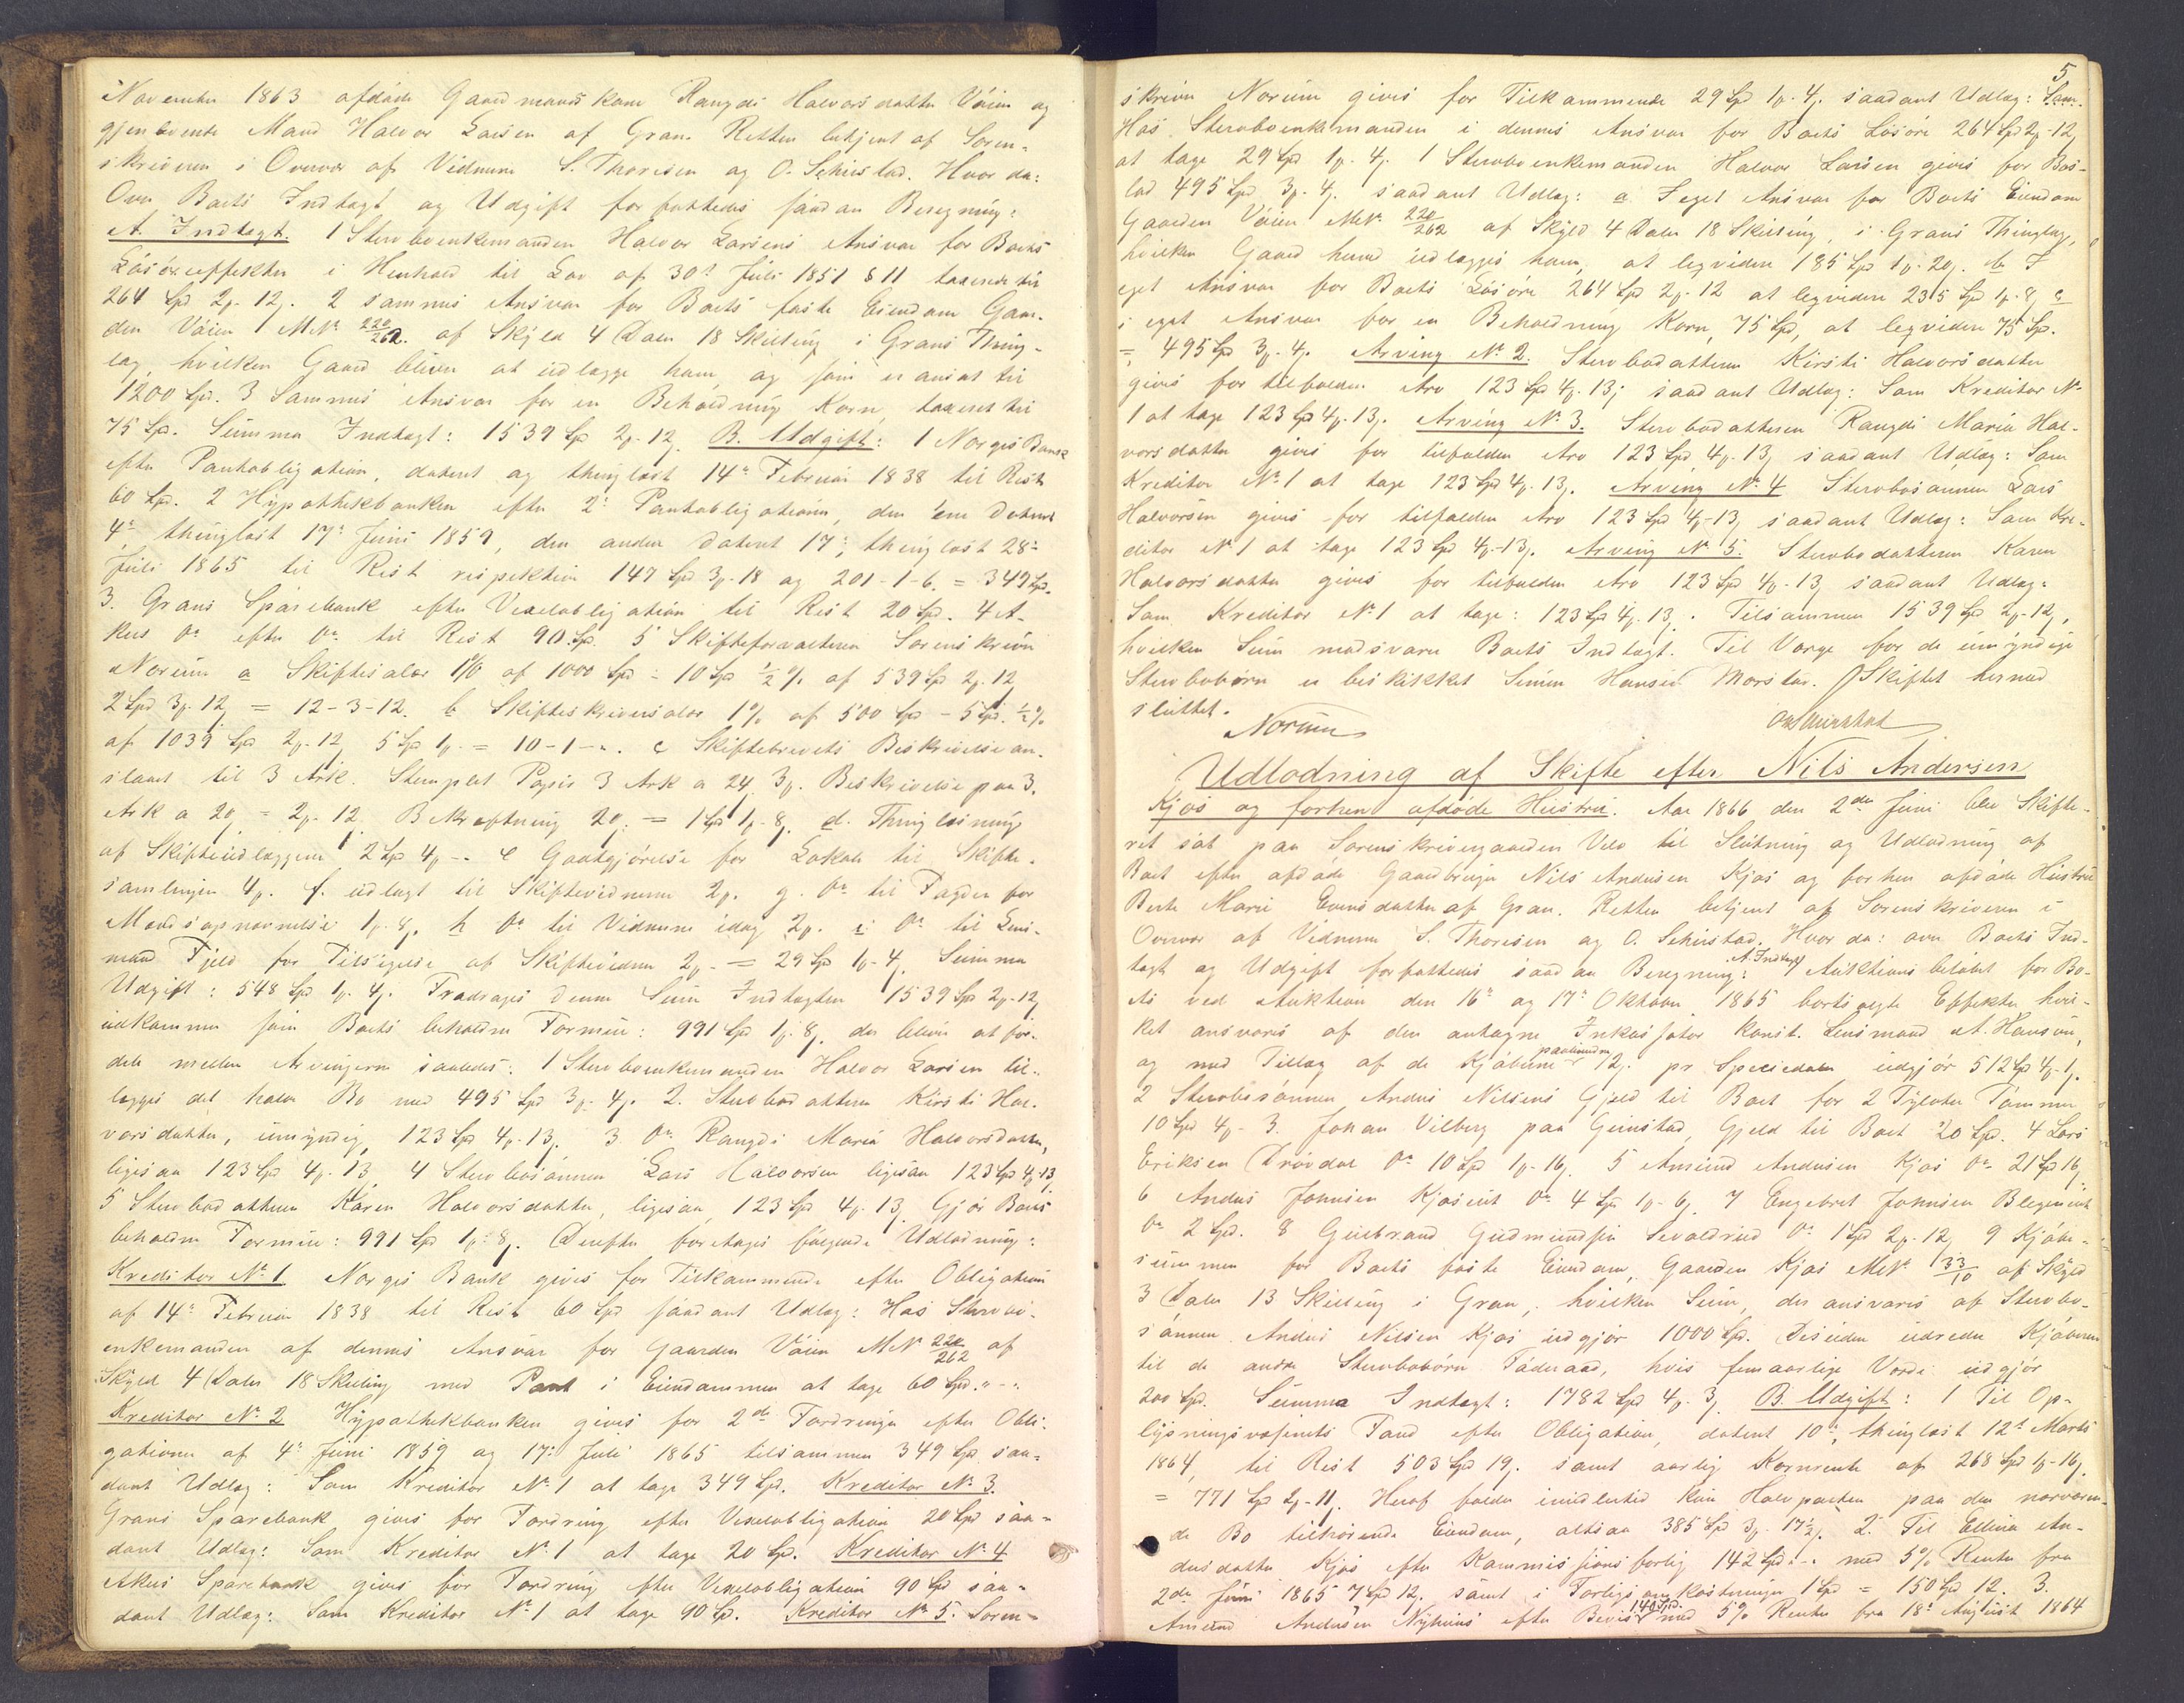 November 1863 afdøde Gaardmandskone Rangdi Halvorsdatter Vøien og
gjenlevende Mand Halvor Larsen af Gran. Retten betjent af Soren-
skriveren i Overvær af Vidnerne S. Thoresen og O. Schirstad. Hvor da:
Over Boets Indtægt og Udgift forfattedes saadan Beregning:
A. Indtægt. 1 Stervboenkemanden Halvor Larsens Ansvar for Boets
Løsøreeffekter i Henhold til Lov af 30t Juli 1851 § 11 taxerede til
264 Spd 2ƒ-12ƒ. 2 sammes Ansvar for Boets faste Eiendom Gaar-
den Vøien MN 220/262. af Skyld 4 Daler 18 Skilling i Grans Thing-
lag, hvilken Gaard bliver at udlægge ham, og som er ansat til
1200 Spd. 3 Sammes Ansvar for en Beholdning Korn, taxeret til
75 Sp. Summa Indtægt: 1539 Sp 2ƒ-12ƒ. B. Udgift: 1 Norges Bank
efter Pantobligation, dateret og thinglæst 14de Februar 1838 til Rest
60 Spd. 2 Hypothekbanken efter 2de Pantobligationer, den ene dateret
4de, thinglæst 17de Juni 1859, den anden dateret 17de, thinglæst 28de
Juli 1865 til Rest respektive 147 Spd 3ƒ-18 og 201-1-6. = 349 Spd.
3. Grans Sparebank efter Vexelobligation til Rest 20 Spd. 4 A-
kers Do efter Do til Rest 90 Spd. 5 Skifteforvalteren Sorenskriver
Norum a Skiftesalær 1% af 1000 Spd = 10 Spd ½% af 539 Spd 2ƒ.12
2 Spd 3ƒ.12 = 12-3-12. b Skifteskriversalær 1% af 500 Spd - 5 Spd. ½%
af 1039 Spd 2ƒ-12 5 Sp 1ƒ. = 10-1-". c Skiftebrevets Beskrivelse an-
slaaet til 3 Ark. Stemplet Papir 3 Ark a 24, 3ƒ. Beskrivelse paa 3.
Ark a 20ƒ = 2ƒ-12. Bekræftning 20ƒ. = 1 Sp 1ƒ-8ƒ. d. Thinglæsning
af Skifteudlæggene 2 Sp 4ƒ--. e Godtgjørelse for Lokale til Skifte-
samlingen 4ƒ. f. udlagt til Skiftevidnerne 2ƒ. g. Do til Fogden for
Mændsopnævnelse 1ƒ-8ƒ. h Do til Vidnerne idag 2ƒ. i Do til Lens-
mand Fjeld for Tilsigelse af Skiftevidner 2ƒ. = 29 Sp 1ƒ-4ƒ. Summa
Udgift: 548 Spd 1ƒ. 4ƒ. Fradrages denne Sum Indtægten 1539 Sp 2ƒ-12ƒ
udkommer som Boets beholdne Formue: 991 Spd 1ƒ-8ƒ. der bliver at for-
dele mellem Arvingerne saaledes: 1 Stervboenkemanden Halvor Larsen til-
lægges det halve Bo med 495 Spd 3ƒ-4ƒ. 2. Stervbodatteren Kirsti Hal-
vorsdatter, umyndig, 123 Spd 4ƒ-13ƒ. 3 Do Rangdi Maria Halvorsdatter,
ligesaa 123 Spd 4ƒ-13 4 Stervbosønnen Lars Halvorsen ligesaa 123 Spd 4ƒ-13ƒ
5 Stervbodatteren Karen Halvorsdatter, ligesaa, 123 Sp 4ƒ. 13ƒ. Gjør Boets
beholdne Formue: 991 Spd 1ƒ-8ƒ. Derefter foretages følgende Udlodning:
Kreditor No 1 Norges Bank gives for Tilkommende efter Obligation
af 14de Februar 1838 til Rest 60 Spd saadant Udlæg: Hos Stervbo-
enkemanden af dennes Ansvar for Gaarden Vøien MN 220/262 af
Skyld 4 Daler 18 Skilling med Pant i Eiendommen at tage 60 Spd."-".
Kreditor No 2 Hypothekbanken gives for 2de Fordringer efter Obli-
gationer af 4de Juni 1859 og 17de Juli 1865 tilsammen 349 Spd saa-
dant Udlæg: Som Kreditor No 1 at tage 349 Spd. Kreditor No 3.
Grans Sparebank gives for Fordring efter Vexelobligation 20 Spd saa-
dant Udlæg: Som Kreditor No 1 at tage 20 Sp. Kreditor No 4
Akers Sparebank gives for Fordring efter Vexelobligation 90 Spd saa-
dant Udlæg: Som Kreditor No 1 at tage 90 Sp. Kreditor No 5. Soren-
5
skriver Norum gives for Tilkommende 29 Spd 1ƒ. 4ƒ. saadant Udlæg: Som.
Hos Stervboenkemanden i dennes Ansvar for Boets Løsøre 264 Spd 2ƒ-12
at tage 29 Spd 1ƒ. 4ƒ. 1 Stervboenkemanden Halvor Larsen gives for Bos-
lod 495 Spd 3ƒ. 4ƒ. saadant Udlæg: a I eget Ansvar for Boets Eiendom
Gaarden Vøien MN 220/262 af Skyld 4 Daler 18 Skilling, i Grans Thinglag,
hvilken Gaard herved udlægges ham, at legvidere 185 Spd 1ƒ. 20ƒ. b I
eget Ansvar for Boets Løsøre 264 Spd 2ƒ-12 at legvidere 235 Sp 1ƒ-8ƒ c
i eget Ansvar for en Beholdning Korn, 75 Spd, at legvidere 75 Sp.
= 495 Spd 3ƒ. 4ƒ. Arving No 2. Stervbodatteren Kirsti Halvorsdatter
gives for tilfalden Arv 123 Spd 4ƒ. 13ƒ saadant Udlæg: Som Kreditor No
1 at tage 123 Spd 4ƒ. 13ƒ. Arving No 3. Stervbodatteren Rangdi Maria Hal-
vorsdatter gives for tilfalden Arv 123 Spd 4ƒ. 13ƒ saadant Udlæg: Som
Kreditor No 1 at tage 123 Spd 4ƒ. 13ƒ. Arving No 4 Stervbosønnen Lars
Halvorsen gives for tilfalden Arv 123 Spd 4ƒ-13ƒ saadant Udlæg: Som Kre-
ditor No 1 at tage 123 Spd 4ƒ-13ƒ. Arving No 5. Stervbodatteren Karen
Halvorsdatter gives for tilfalden Arv 123 Spd 4ƒ-13ƒ saadant Udlæg:
Som Kreditor No 1 at tage: 123 Spd 4ƒ. 13ƒ. Tilsammen 1539 Spd 2ƒ-12ƒ,
hvilken Sum modsvarer Boets Indtægt. Til Værge for de umyndige
Stervbobørn er beskikket Simen Hansen Morstad. Skiftet hermed
sluttet.
Norum
Udlodning af Skifte efter Nils Andersen
Kjos og forhen afdøde Hustru. Aar 1866 den 2den Juni blev Skifte-
ret sat paa Sorenskrivergaarden Velo til Slutning og Udlodning af
Boet efter afdøde Gaardbruger Nils Andersen Kjos og forhen afdøde Hustru
Berte Marie Evensdatter af Gran. Retten betjent af Sorenskriveren i
Overvær af Vidnerne S. Thoresen og O. Schirstad. Hvor da: over Boets Ind-
tægt og Udgift forfattedes saadan Beregning: A. Indtægt Auktionsbeløbet for Bo-
ets ved Auktion den 16de og 17de Oktober 1865 bortsolgte Effekter hvil-
ket ansvares af den antagne Inkassator konst. Lensmand A. Hansen,
og med Tillæg af de Kjøberne paaliggende 12ƒ. pr Speciedaler udgjør 512 Spd 4ƒ-1ƒ.
2 Stervbosønnen Anders Nilsens Gjeld til Boet for 2 Tylvter Tømmer
10 Spd 4ƒ- 3. Johan Vilberg paa Grinstad, Gjeld til Boet 20 Spd. 4 Lars
Eriksen Drøvdal Do 10 Spd 1ƒ-16ƒ. 5 Amund Andersen Kjos Do 21 Spd 16ƒ.
6 Anders Johnsen Kjoseiet Do 4 Spd 1ƒ-6ƒ. 7 Engebret Johnsen Blegeneiet
Do 2 Spd. 8 Gulbrand Gudmundsen Sevaldrud Do 1 Spd 2ƒ-12ƒ 9 Kjøbe-
summen for Boets faste Eiendom, Gaarden Kjos MN 133/10 af Skyld
3 Daler 13 Skilling i Gran, hvilken Sum, der ansvares af Stervbo-
sønnen Anders Nilsen Kjos udgjør 1000 Spd. Desuden udreder Kjøberen
til de andre Stervbobørn Føderaad, hvis femaarlige Værdi udgjør
200 Spd. Summa Indtægt: 1782 Spd 4ƒ. 3ƒ. B. Udgift: 1 Til Op-
lysningsvæsenets Fond efter Obligation, dateret 10de, thinglæst 12te Marts
1864, til Rest 503 Spd 19ƒ. samt aarlig Kornrente af 268 Spd 1ƒ-16ƒ.
= 771 Spd 2ƒ-11ƒ. Heraf falder imidlertid kun Halvparten paa den nærværen-
de Bo tilhørende Eiendom, altsaa 385 Spd 3ƒ. 17½ƒ. 2. Til Ellina An-
dersdatter Kjos efter Kommissionsforlig 142 Spd"-" med 5% Renter fra
2den Juni 1865 7 Spd 12. samt i Forligsomkostninger 1 Spd = 150 Spd 12. 3.
Amund Andersen Nyhuus efter Bevis 140 Spd. med 5% Renter fra 18de August 1864